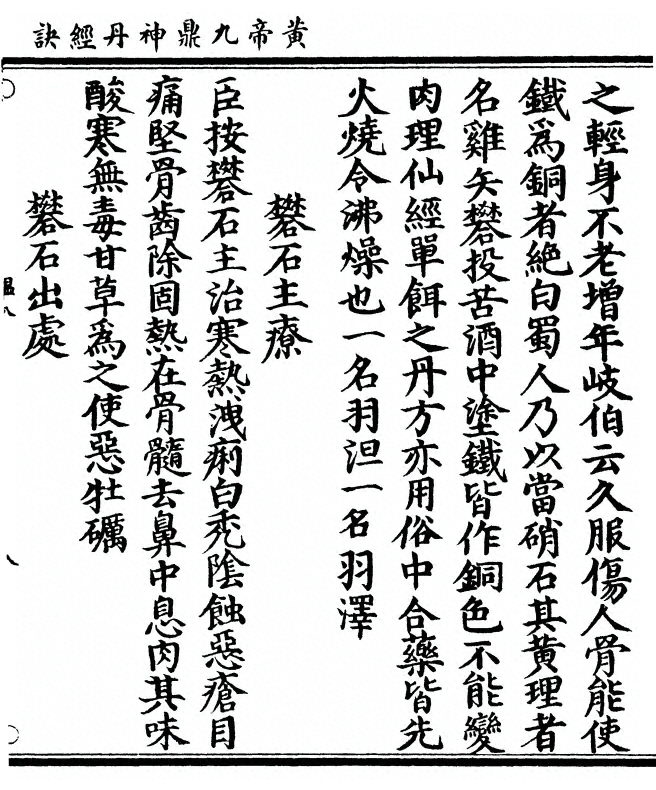 黃帝九鼎神丹經訣
之輕身不老增年岐伯云久服傷人骨能使
鐵爲銅者絶白蜀人乃以當硝石其黃理者
名雞矢礬投苦酒中塗鐵皆作銅色不能變
肉理仙經單餌之丹方亦用俗中合藥皆先
火燒令沸燥也一名羽泹一名羽澤
礬石主療
臣按礬石主治寒熱洩痢白禿陰蝕惡瘡目
痛堅骨齒除固熱在骨髓去鼻中息肉其味
酸寒無毒甘草爲之使惡牡礪
礬石出處